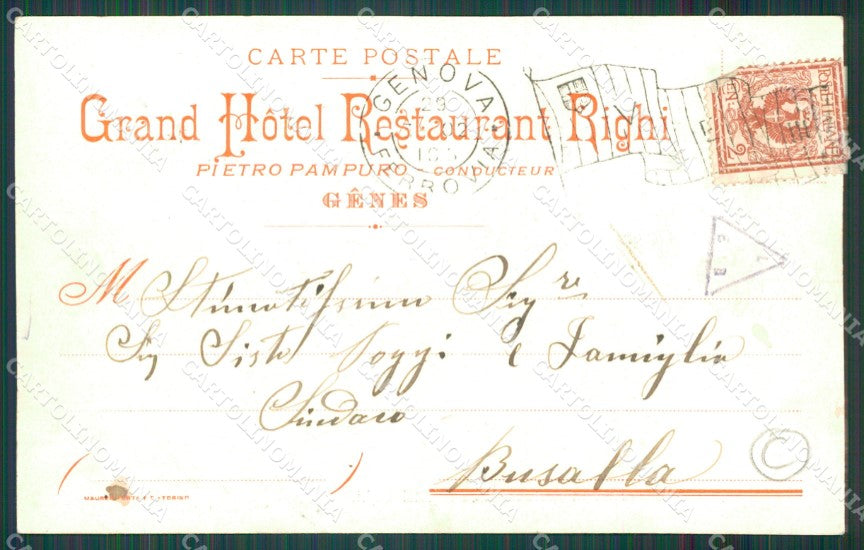 CARTE POSTALE
Grand Hôtel Restaurant Righi
PIETRO PAMPURO - CONDUCTEUR
GÊNES
GENOVA
29
FERROVIA
M Stimatissimo Sigre
Sig Sisto Poggi e Famiglia
Sindaco
Busalla
TORINO
C
CARTOLINOMANIA